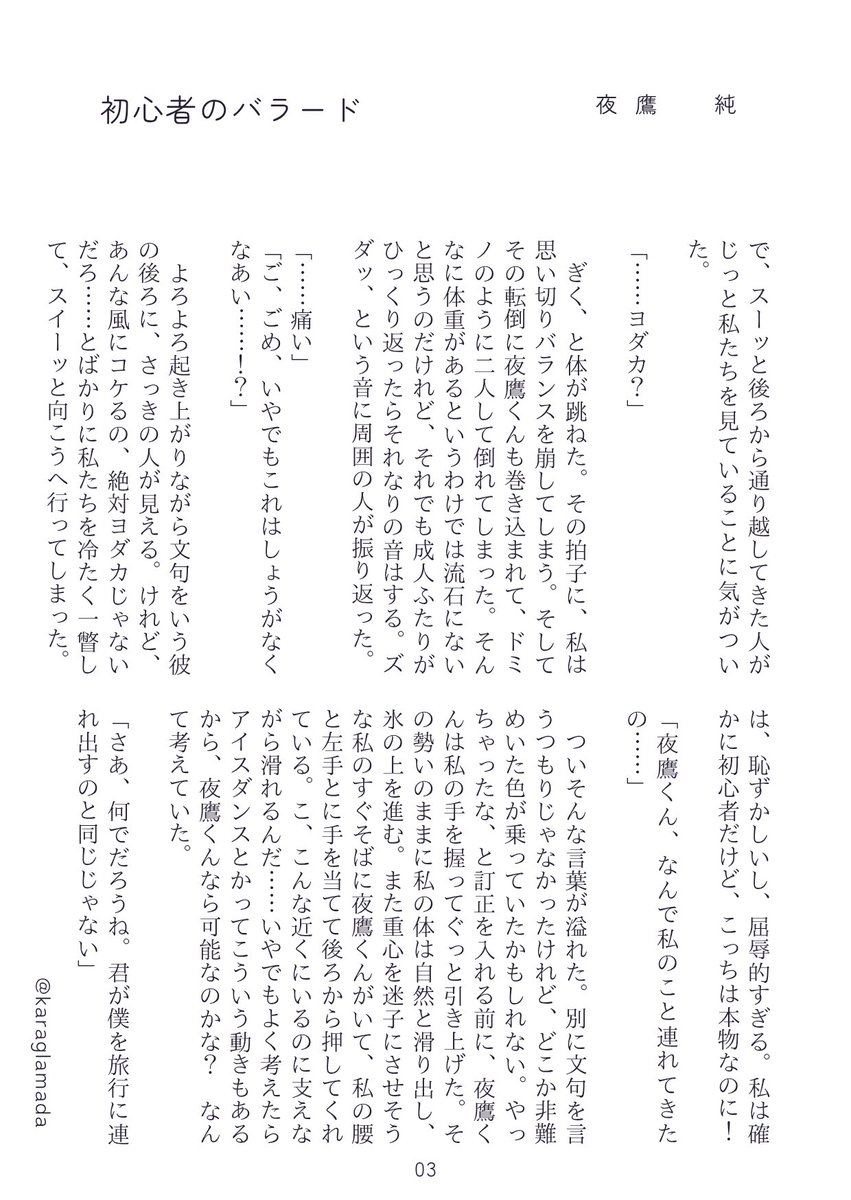 初心者のバラード
夜鷹　純
で、スーッと後ろから通り越してきた人が
じっと私たちを見ていることに気がつい
た。
「……ヨダカ？」
ぎく、と体が跳ねた。その拍子に、私は
思い切りバランスを崩してしまう。そして
その転倒に夜鷹くんも巻き込まれて、ドミ
ノのように二人して倒れてしまった。そん
なに体重があるというわけでは流石にない
と思うのだけれど、それでも成人ふたりが
ひっくり返ったらそれなりの音はする。ズ
ダッ、という音に周囲の人が振り返った。
「……痛い」
「ご、ごめ、いやでもこれはしょうがなく
なあい……！？」
よろよろ起き上がりながら文句をいう彼
の後ろに、さっきの人が見える。けれど、
あんな風にコケるの、絶対ヨダカじゃない
だろ……とばかりに私たちを冷たく一瞥し
て、スイーッと向こうへ行ってしまった。
は、恥ずかしいし、屈辱的すぎる。私は確
かに初心者だけど、こっちは本物なのに！
「夜鷹くん、なんで私のこと連れてきた
の……」
ついそんな言葉が溢れた。別に文句を言
うつもりじゃなかったけれど、どこか非難
めいた色が乗っていたかもしれない。やっ
ちゃったな、と訂正を入れる前に、夜鷹く
んは私の手を握ってぐっと引き上げた。そ
の勢いのままに私の体は自然と滑り出し、
氷の上を進む。また重心を迷子にさせそう
な私のすぐそばに夜鷹くんがいて、私の腰
と左手とに手を当てて後ろから押してくれ
ている。こ、こんな近くにいるのに支えな
がら滑れるんだ……いやでもよく考えたら
アイスダンスとかってこういう動きもある
から、夜鷹くんなら可能なのかな？　なん
て考えていた。
「さあ、何でだろうね。君が僕を旅行に連
れ出すのと同じじゃない」
@karaglamada
03